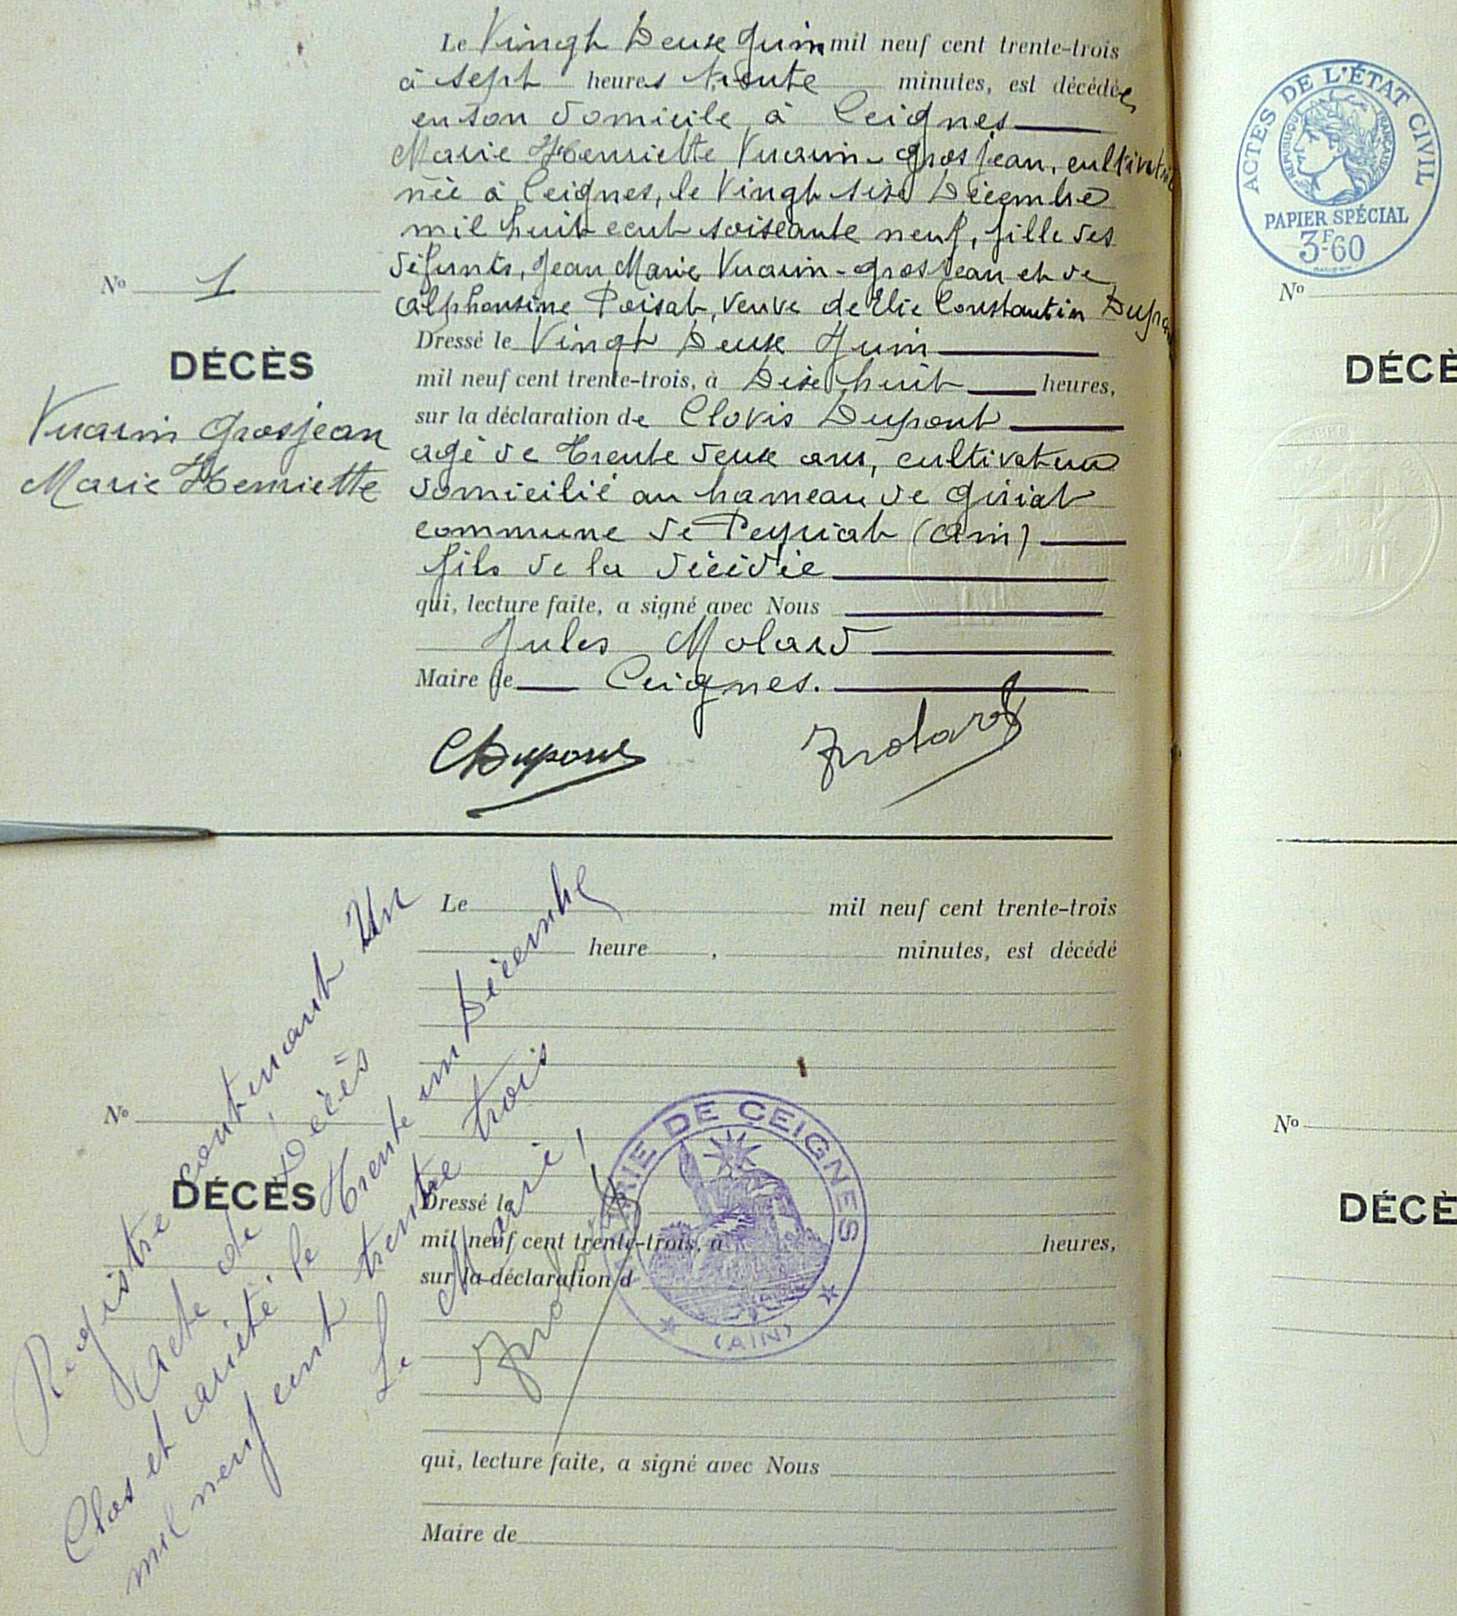 Le Vingt Deux Juin mil neuf cent trente-trois
à sept heures trente minutes, est décédée
en son domicile à Ceignes
Marie Henriette Vuarin-Grosjean, cultivatrice
née à Ceignes, le Vingt six Décembre
mil huit cent soixante neuf, fille des
défunts, Jean Marie Vuarin-Grosjean et de
Alphonsine Poisat, veuve de Elie Constantin Dupont
Dressé le Vingt Deux Juin
mil neuf cent trente-trois, à Dix huit heures,
sur la déclaration de Clovis Dupont
agé de Trente deux ans, cultivateur
domicilié au hameau de Giriat
commune de Peyriat (Ain)
fils de la décédée
qui, lecture faite, a signé avec Nous
Jules Molard
Maire de Ceignes.
CDupont Molard
No 1
DÉCÈS
Vuarin Grosjean
Marie Henriette
Le mil neuf cent trente-trois
heure , minutes, est décédé
No
DÉCÈS
Dressé le
mil neuf cent trente-trois, à heures,
sur la déclaration d
qui, lecture faite, a signé avec Nous
Maire de
Registre contenant Un
Acte de Décès
Clos et arrêté le Trente un Décembre
mil neuf cent trente trois
Le Maire
Molard
MAIRIE DE CEIGNES
(AIN)
ACTES DE L'ÉTAT CIVIL
RÉPUBLIQUE FRANÇAISE
PAPIER SPÉCIAL
3F-60
No
DÉCÈ
No
DÉCÈ